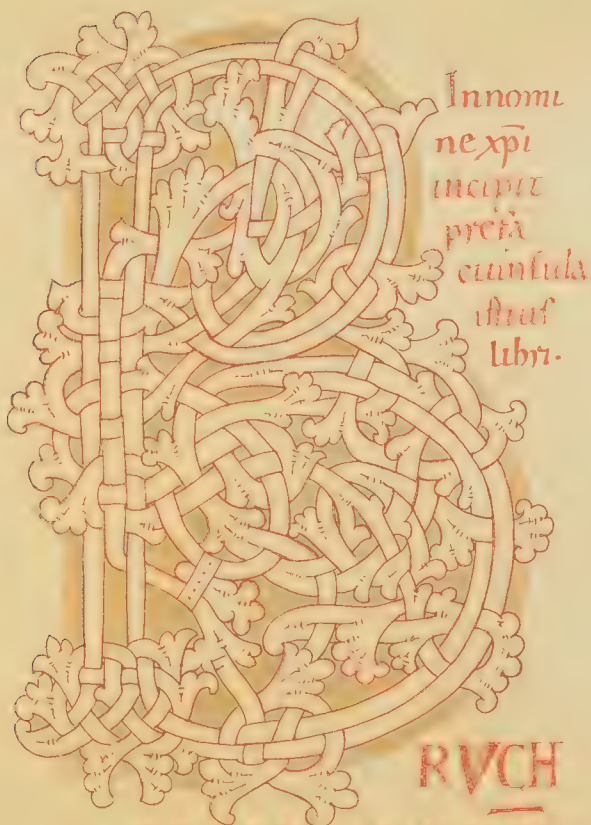 In nomi
ne xp̄i
incipit
prefa
ciuncula
istius
libri.
B
RVCH